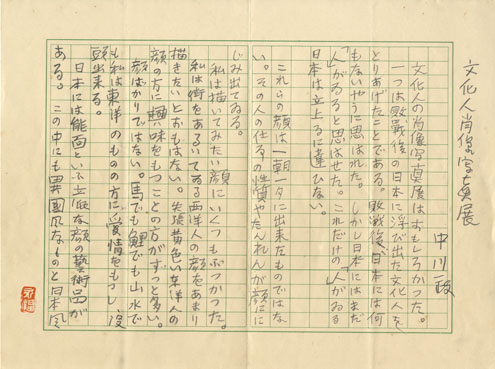 文化人肖像写真展
中川一政
文化人の肖像写真展はおもしろかった。
一つは敗戦後の日本に浮び出た文化人を
とりあげたことである。敗戦後、日本には何
もないやうに思はれた。しかし日本にはまだ
「人」がゐると思はせた。これだけの「人」がゐる
日本は立上るに違ひない。
これらの顔は一朝一夕に出来たものではな
い。その人の仕事の性質やたんれんが顔にに
じみ出てゐる。
私は描いてみたい顔にいくつもぶつかつた。
私は街をあるいてゐる西洋人の顔をあまり
描きたいとおもはない。矢張黄色い東洋人の
顔の方に興味をもつことの方がずつと多い。
顔ばかりではない。馬でも鯉でも山水で
も私は東洋のものの方に愛情をもつし没
頭出来る。
日本には能面といふ立派な顔の藝術品が
ある。この中にも異国風なものと日本風